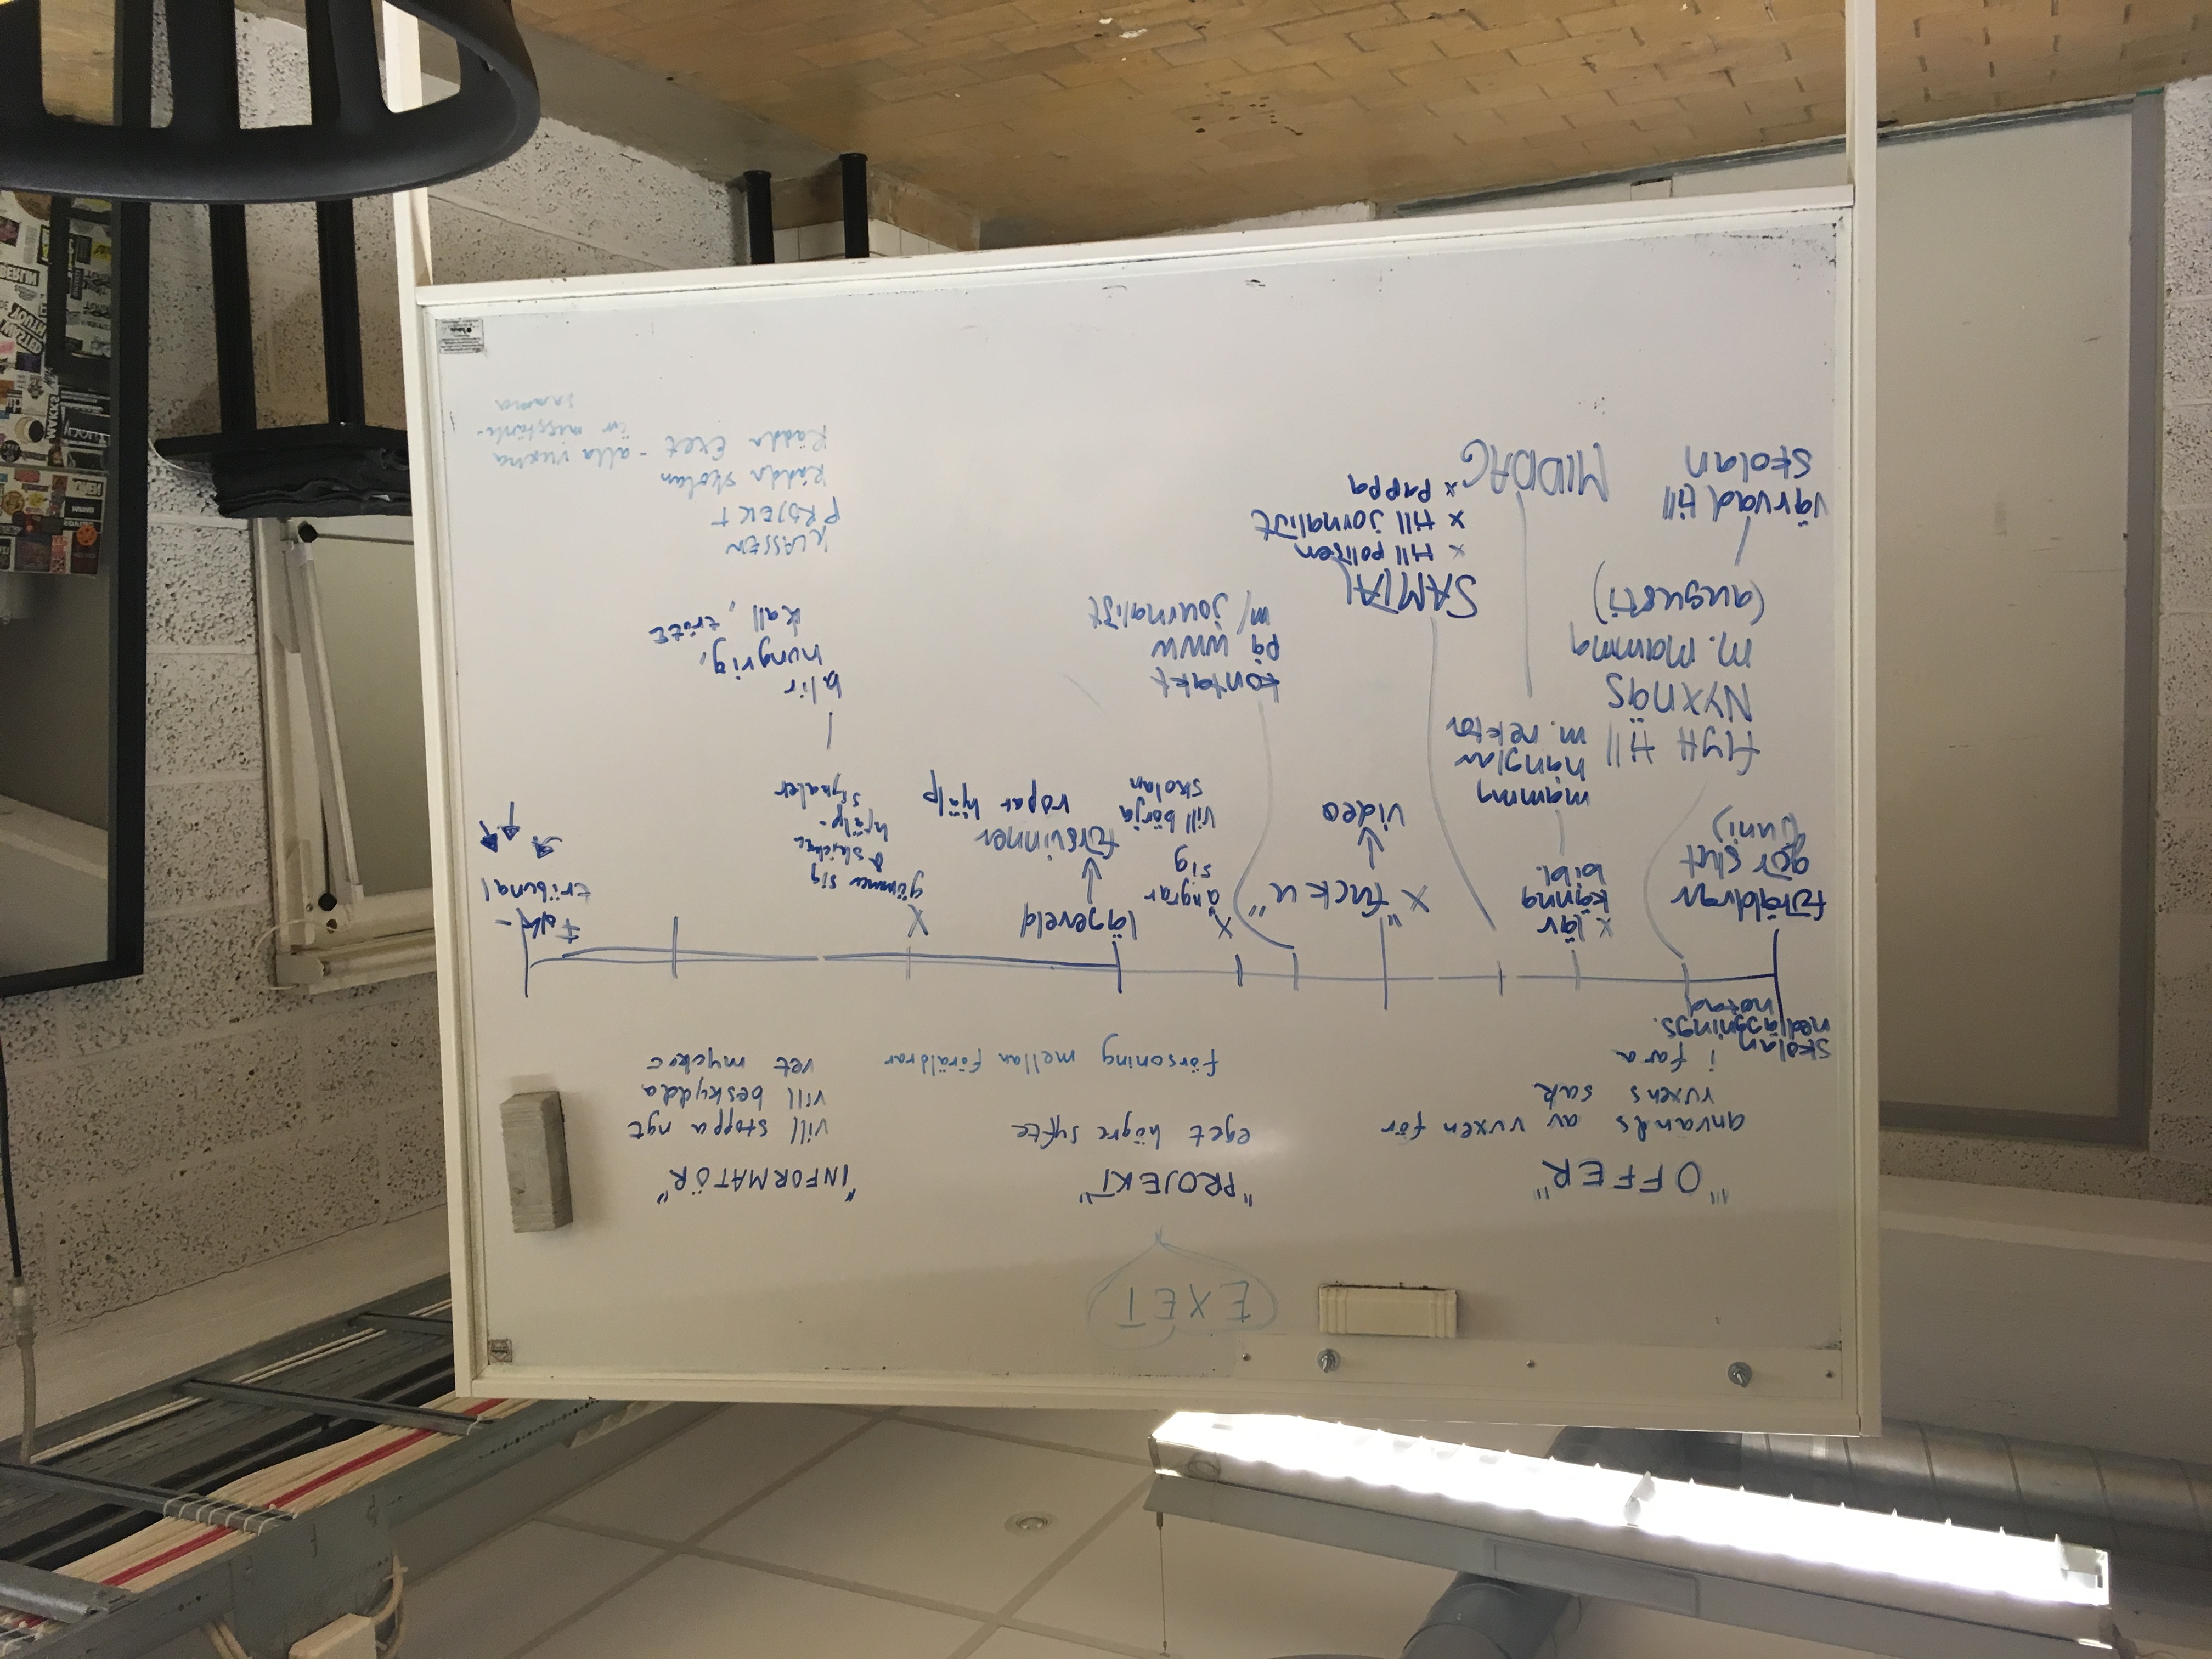 EXET
"OFFER"
används av vuxen för
vuxens sak
i fara
"PROJEKT"
eget högre syfte
försoning mellan föräldrar
"INFORMATÖR"
vill stoppa ngt
vill beskydda
vet mycket
skolan
nedläggnings.
hotad
föräldrar
gör slut
(juni)
flytt till
Nyxnäs
m. mamma
(augusti)
värvad till
skolan
x lär
känna
bibl.
mamma
hånglar
m. rektor
MIDDAG
SAMTAL
x till polisen
x till jornalist
x pappa
x "fuck u"
video
kontakt
på www
m/ journalist
x
ångrar
sig
vill börja
skolan
lägereld
försvinner
ropar hjälp
x
gömmer sig
& skickar
hjälp-
signaler
blir
hungrig,
kall, trött
Folk-
tribunal
KLASSEN
PROJEKT
Rädda skolan
Rädda Exet - alla vuxna
är misstänk-
samma